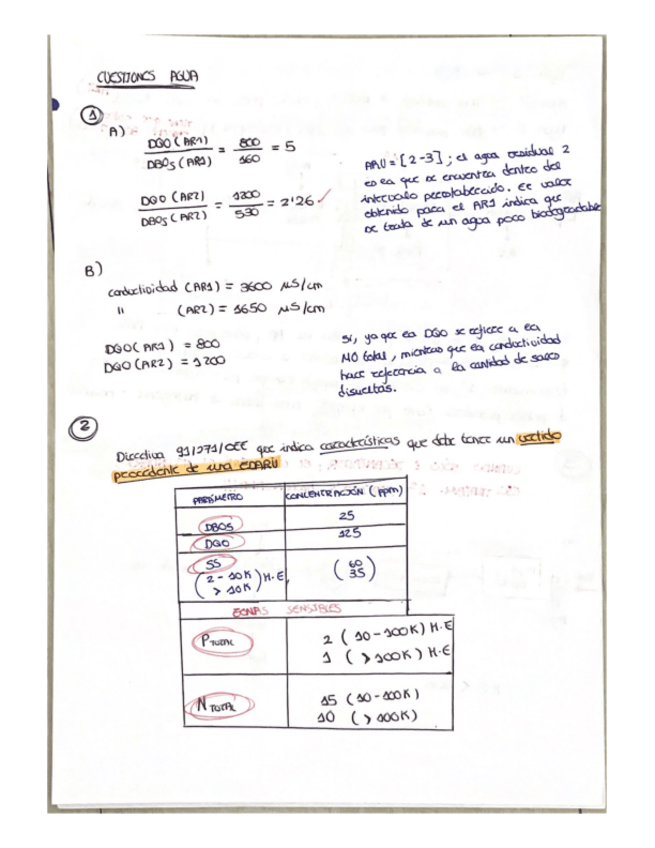 CUESTIONES AGUA
①
A)
DQO (AR1) / DBO5 (AR1) = 800 / 160 = 5
DQO (AR2) / DBO5 (AR2) = 1200 / 530 = 2'26 ✓
ARU = [2-3] ; el agua residual 2
es la que se encuentra dentro del
intervalo preestablecido. El valor
obtenido para el AR1 indica que
se trata de un agua poco biodegradable
B)
conductividad (AR1) = 3600 μS/cm
" (AR2) = 1650 μS/cm
DQO (AR1) = 800
DQO (AR2) = 1200
Sí, ya que la DQO se refiere a la
MO total, mientras que la conductividad
hace referencia a la cantidad de sales
disueltas.
②
Directiva 91/271/CEE que indica características que debe tener un vertido
procedente de una EDARU
PARÁMETRO CONCENTRACIÓN (ppm)
DBO5 25
DQO 125
SS
(2 - 10K) H-E (60
> 10K 35)
ZONAS SENSIBLES
P TOTAL
2 (10-100K) H-E
1 (>100K) H-E
N TOTAL
15 (10-100K)
10 (>100K)